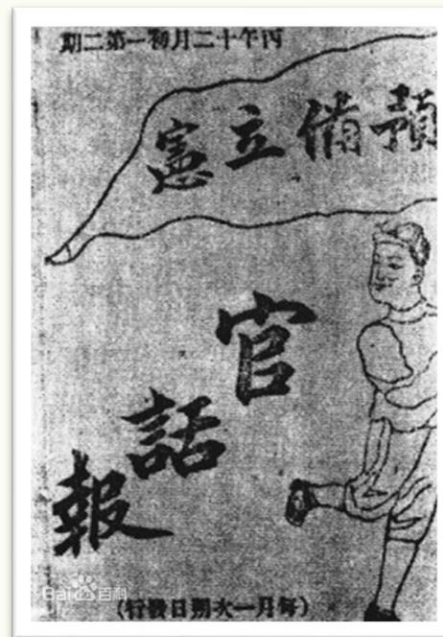 丙午十二月初一第二期
預備立憲
官話報
(每月一次朔日發行)
Bai百科